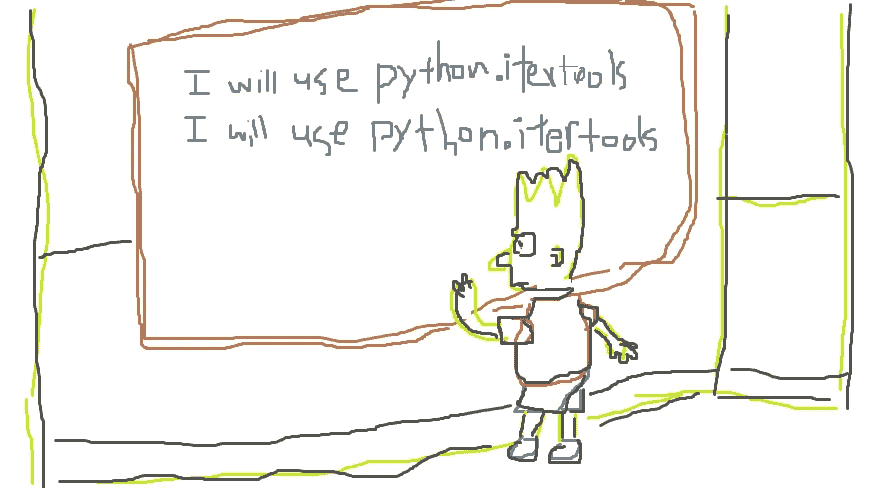 I will use python.itertools
I will use python.itertools